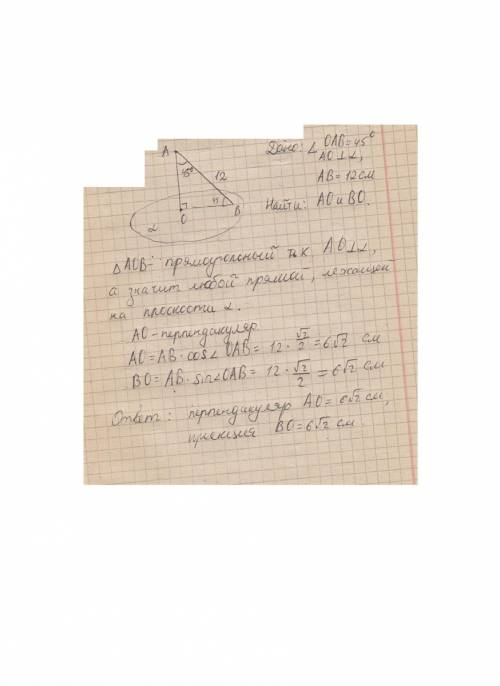 A
45°
12
45
O
B
α
Дано: ∠ OAB=45°
AO⊥α,
AB=12 см
Найти: AO и BO.
△AOB - прямоугольный т.к. AO⊥α,
а значит любой прямой, лежащей
на плоскости α.
AO - перпендикуляр
AO=AB·cos∠OAB= 12 · √2/2 =6√2 см
BO= AB·sin∠OAB= 12 · √2/2 = 6√2 см
Ответ: перпендикуляр AO= 6√2 см,
проекция BO=6√2 см